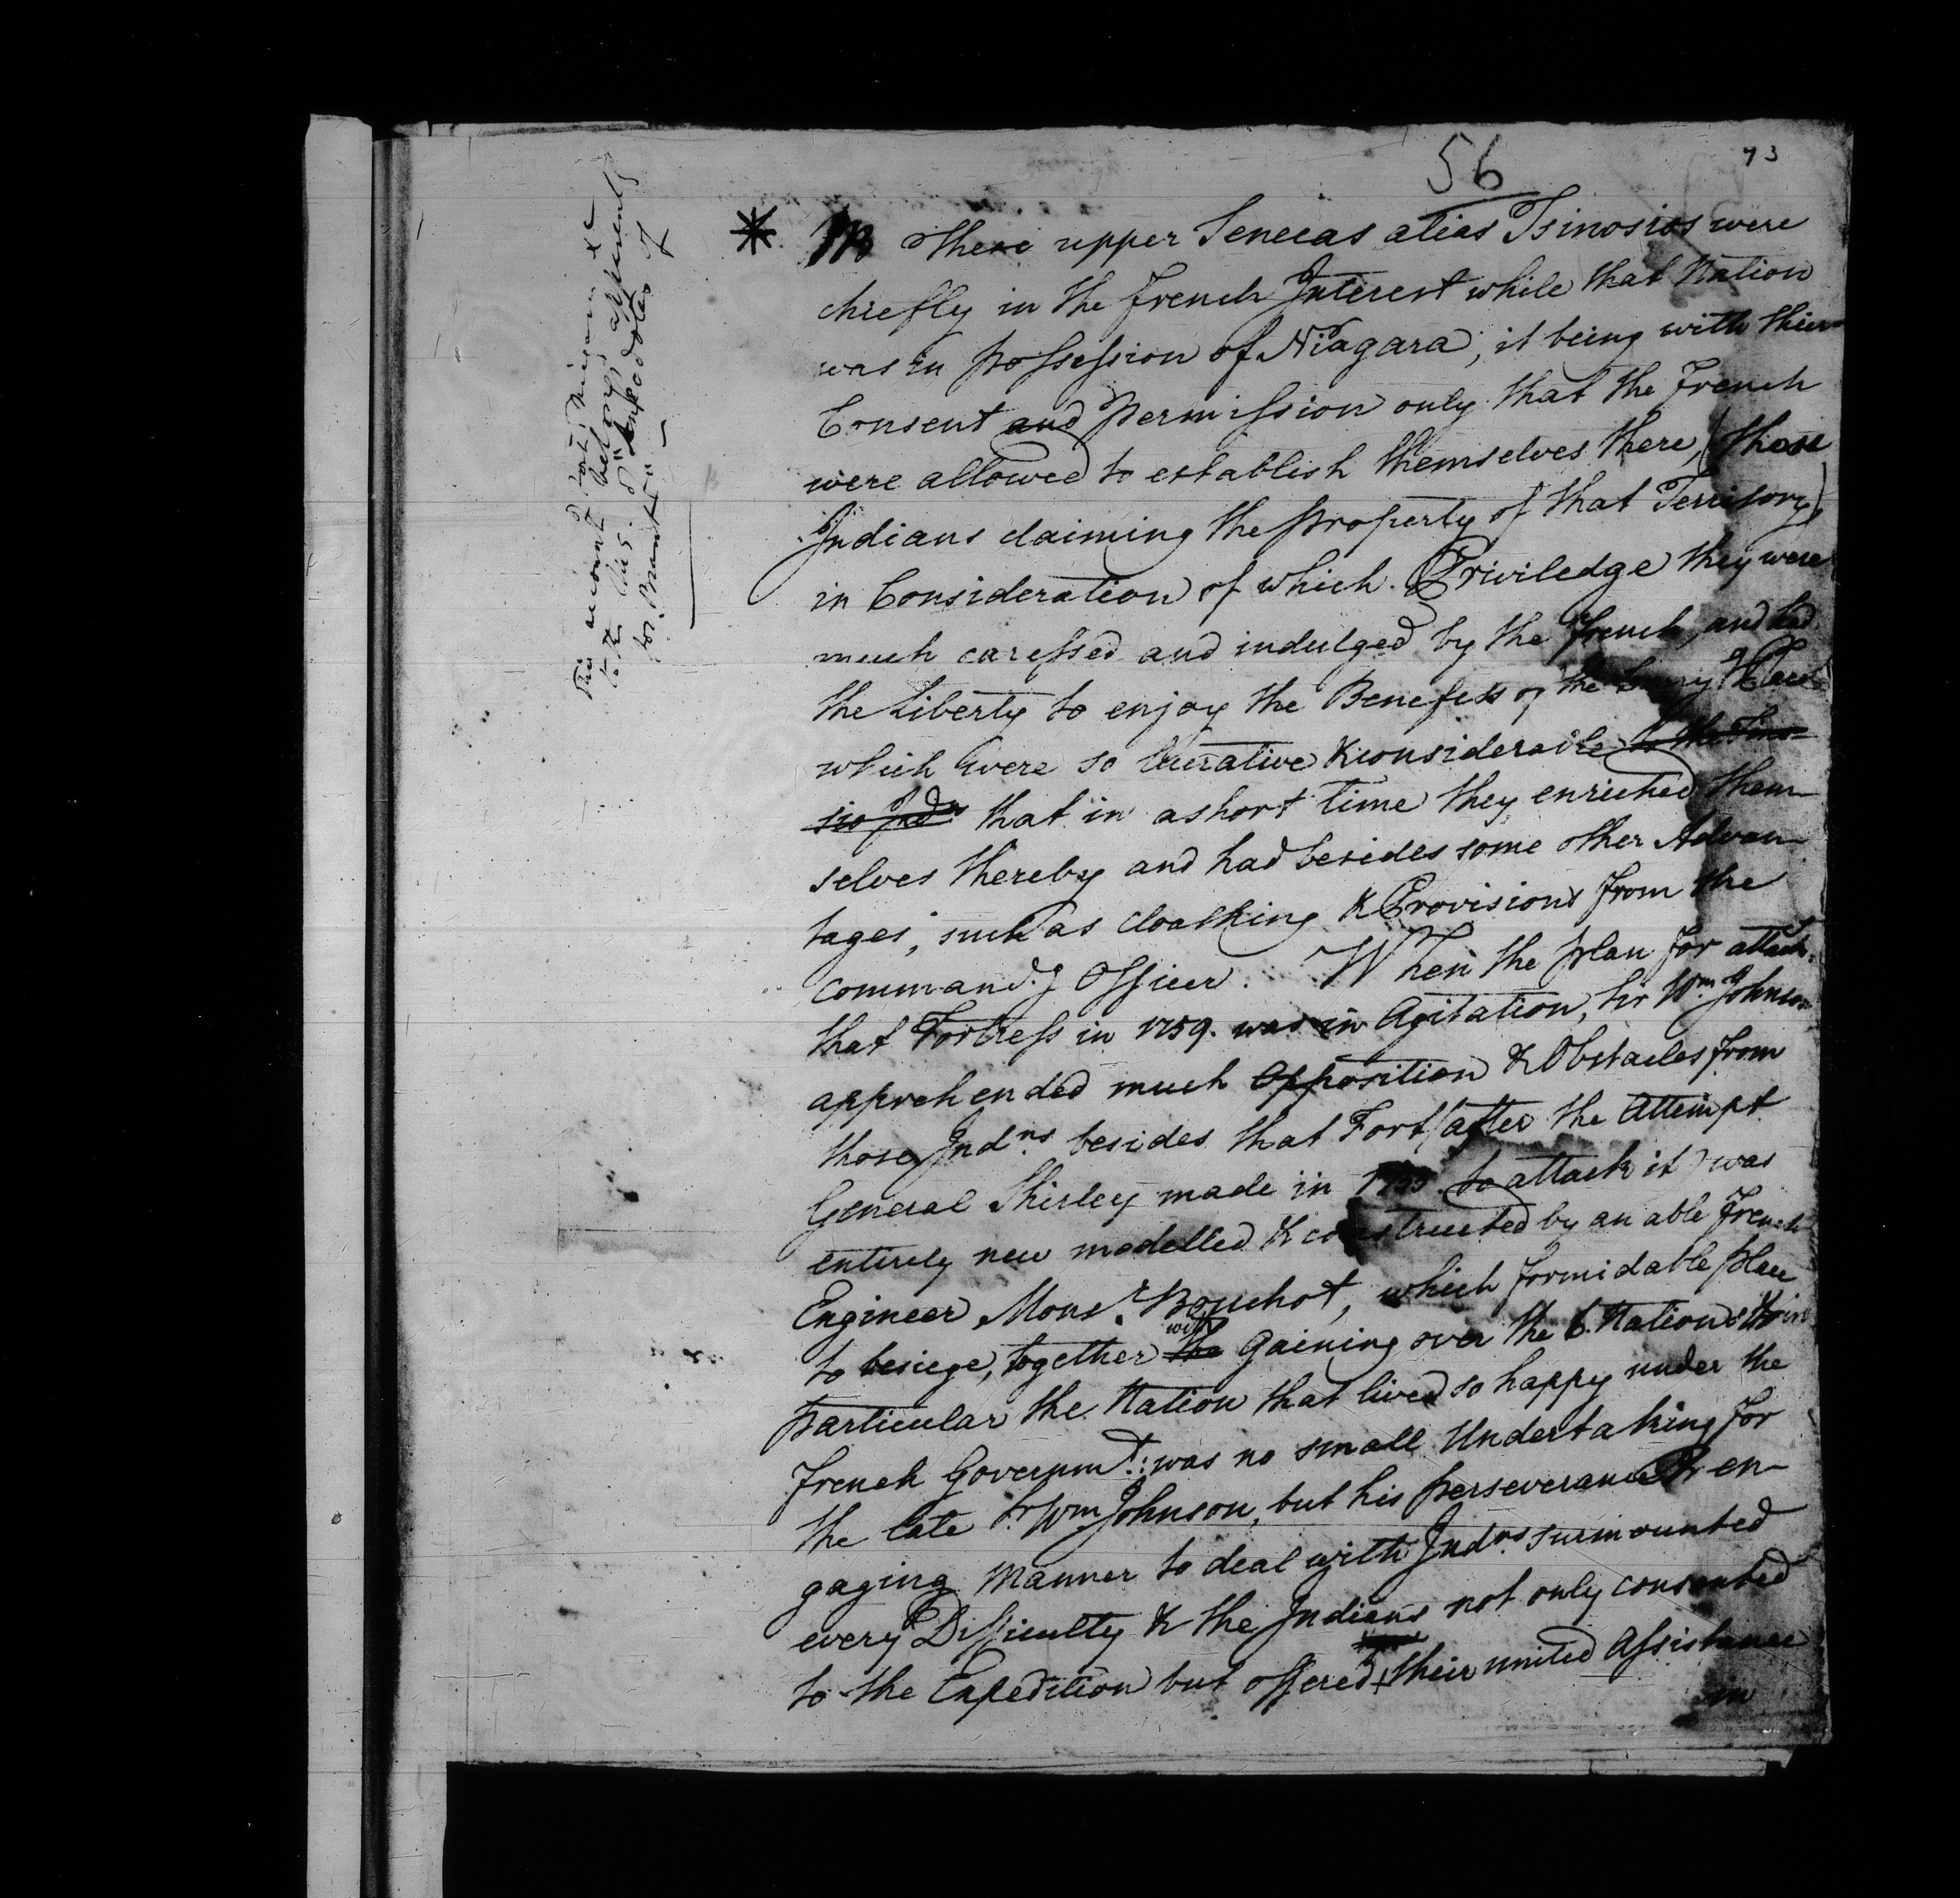 56
73
* NB These upper Senecas alias Tsinosios were
chiefly in the French Interest while that Nation
was in possession of Niagara, it being with their
Consent and Permission only that the French
were allowed to establish themselves there, (those
Indians claiming the property of that Territory)
in Consideration of which Priviledge they were
much caressed and indulged by the French, and had
the Liberty to enjoy the Benefits of the Carry.g Place
which were so lucrative & considerable to the Tsino-
sio Inds that in a short time they enriched them-
selves thereby and had besides some other Advan-
tages, such as cloathing & Provisions from the
command.g Officer. When the plan for attack.
that Fortress in 1759. was in Agitation, Sir Wm Johnson
apprehended much Opposition & Obstacles from
those Indns. besides that Fort (after the Attempt
General Shirley made in 1755. to attack it) was
entirely new modelled & constructed by an able French
Engineer Monsr. Pouchot, which formidable place
to besiege, together the with gaining over the 6 Nations & in
particular the Nation that lived so happy under the
French Governmt.: was no small Undertaking for
the late Sr. Wm Johnson, but his perseverance & en-
gaging Manner to deal with Indns surmounted
every Difficulty & the Indians not only consented
to the Expedition but offered their united Assistance
in
This account of Fort Niagara &c
to the belongs apparently
"Anecdotes of
Jos. Brant" —